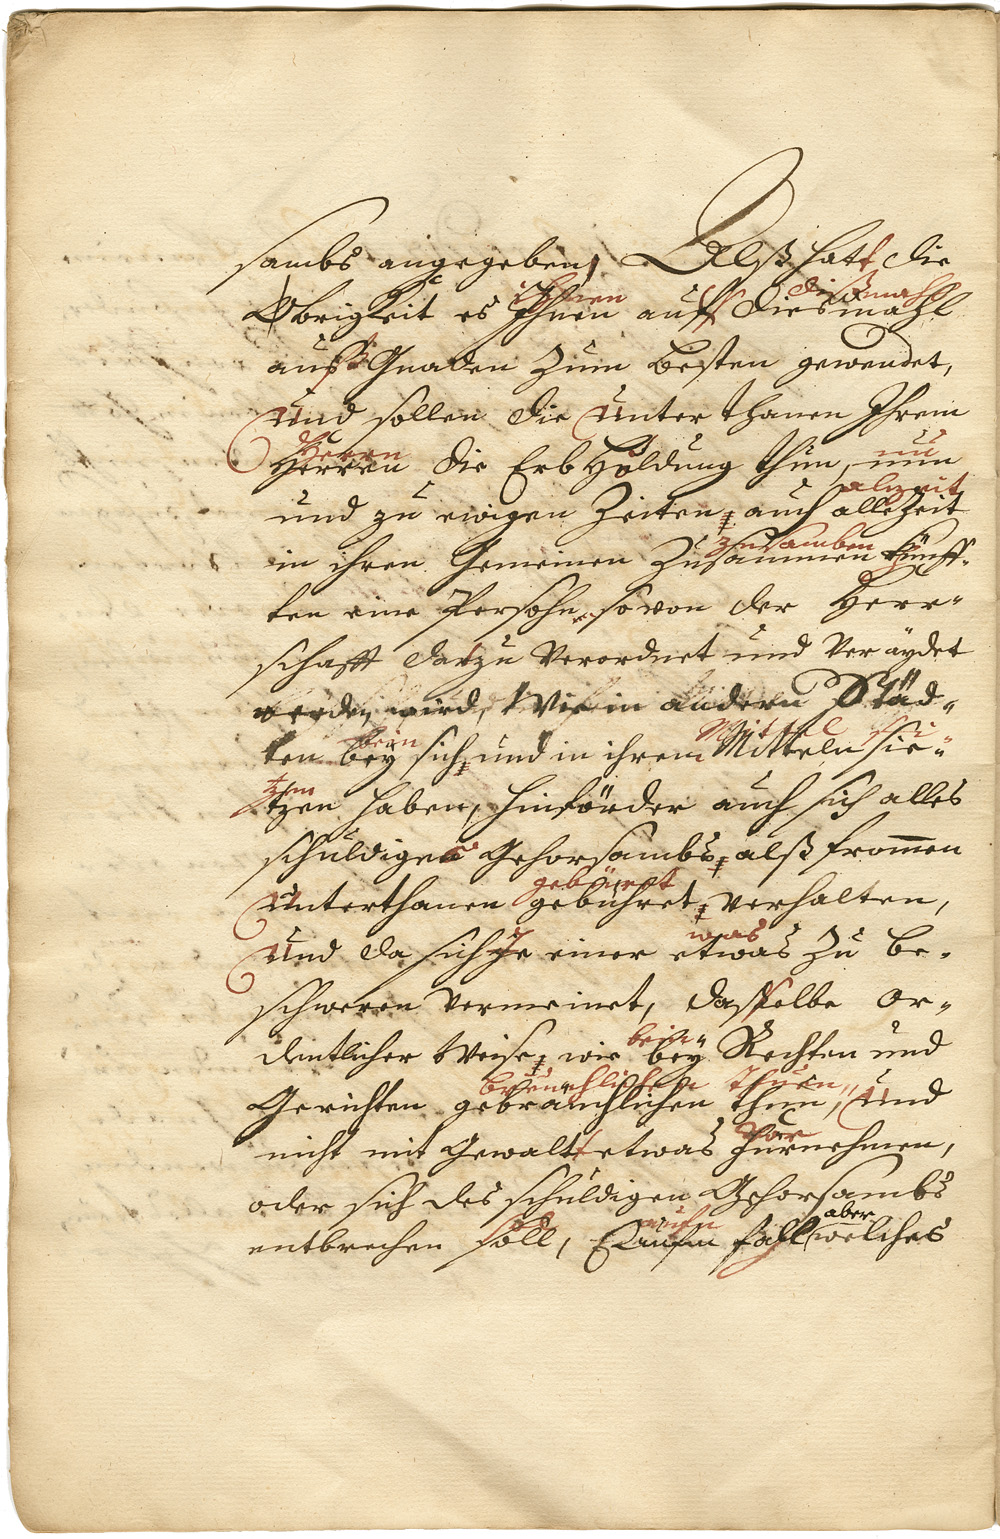 sambs angegeben, Alß hatt die
ihnen dißmahl
Obrigkeit es Ihnen auff diesmahl
auß Gnaden Zum besten gewendet,
Und sollen die Unterthanen Ihrem
Herrn nu
Herren die ErbHuldung thun, nun
alzeit
und zu ewigen Zeiten, auch alleZeit
zusamben
in ihren Gemeinen Zusammen künff-
ten eine Persohn, so von der Herr-
schafft datzu Verordnet und Veräydet
werden wird, Wie in andern Städ-
beÿn Mittel si
ten beÿ sich, und in ihrem Mitteln sie-
tzen
tzen haben, hinförder auch sich alles
schuldigen Gehorsambs, alß frommen
gebüret
Unterthanen gebühret, verhalten,
was
Und da sich Je einer etwas Zu be-
schweren vermeinet, dasselbe or-
dentlicher Weise, wie beÿ Rechten und
breuchlichen thuen
Gerichten gebräuchlichen thun, Und
vor
nicht mit Gewalt etwas fürnehmen,
oder sich des schuldigen Gehorsambs
aufn aber
entbrechen soll, Aufm fall welches